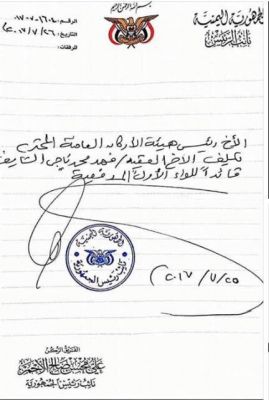 بسم الله الرحمن الرحيم
الجمهورية اليمنية
نائب الرئيس
الرقم:
التاريخ:
المرفقات:
الأخ رئيس هيئة الأركان العامة المحترم
تكليف الأخ العقيد / فهد محمد ناجي
قائداً للواء الأول
الجمهورية اليمنية
نائب رئيس الجمهورية
٢٠١٧/٧/٢٥
الفريق الركن
علي محسن صالح الأحمر
نائب رئيس الجمهورية